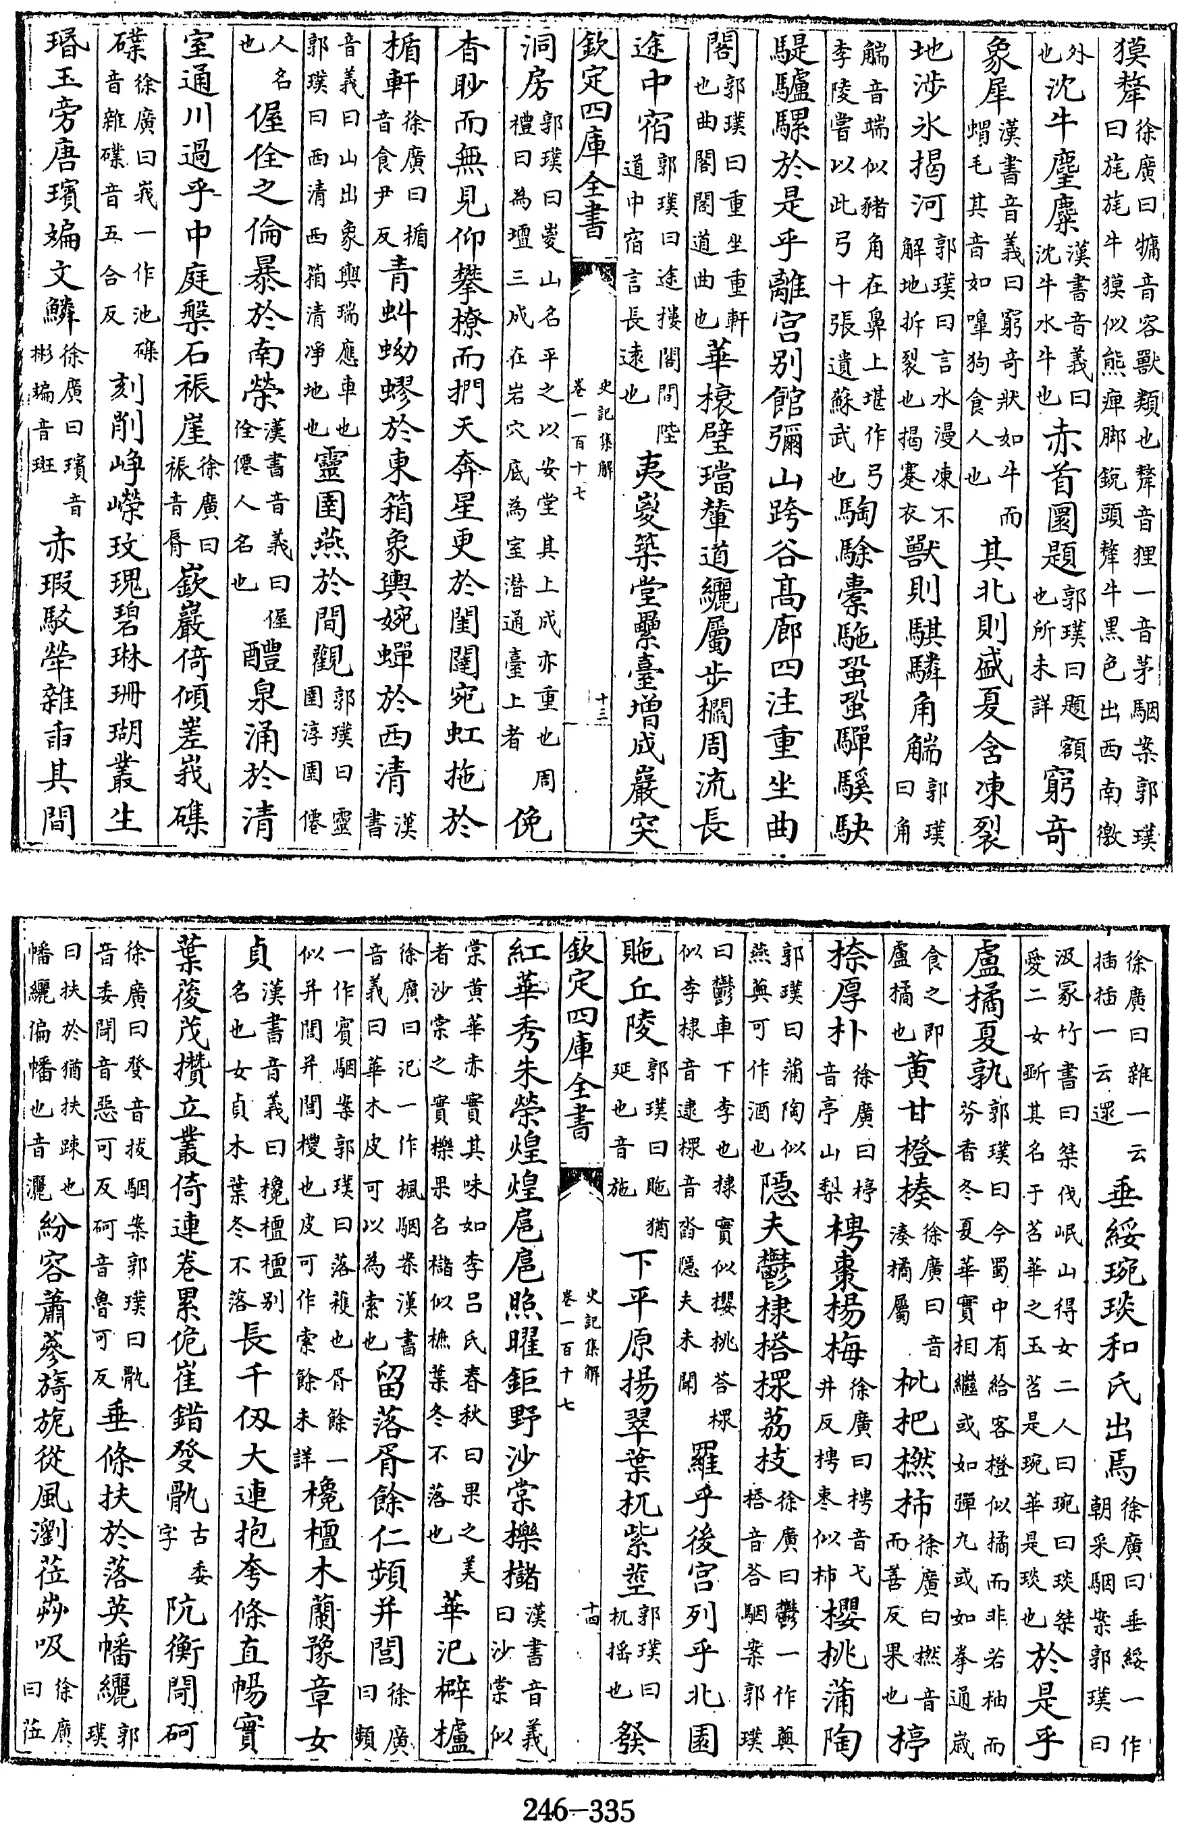 獏犛徐廣曰𤛑音容獸類也犛音狸一音茅駰案郭璞曰旄旄牛獏似熊庳脚銳頭犛牛黑色出西南徼
外也沈牛麈麋漢書音義曰沈牛水牛也赤首圜題郭璞曰題額也所未詳窮奇
象犀漢書音義曰窮奇狀如牛而蝟毛其音如嘷狗食人也其北則盛夏含凍裂
地涉氷揭河郭璞曰言水漫凍不解地拆裂也揭褰衣獸則騏驎角䚎郭璞曰角
䚎音端似豬角在鼻上堪作弓李陵嘗以此弓十張遺蘇武也騊駼橐駞蛩蛩驒騱駃
騠驢騾於是乎離宫别館彌山跨谷髙廊四注重坐曲
閣郭璞曰重坐重軒也曲閣閣道曲也華榱璧璫輦道纚屬步櫩周流長
途中宿郭璞曰途摟閣間陛道中宿言長逺也夷嵏築堂纍臺增成巖突
欽定四庫全書
史記集解
卷一百十七
十三
洞房郭璞曰嵏山名平之以安堂其上成亦重也周禮曰為壇三成在岩穴底為室潛通臺上者俛
杳眇而無見仰攀橑而捫天奔星更於閨闥宛虹拖於
楯軒徐廣曰楯音食尹反青虯蚴蟉於東箱象輿婉蟬於西清漢書
音義曰山出象輿瑞應車也郭璞曰西清西箱清凈地也靈圉燕於間觀郭璞曰靈圉淳圉僊
人名也偓佺之倫暴於南榮漢書音義曰偓佺僊人名也醴泉涌於清
室通川過乎中庭槃石裖崖徐廣曰裖音脣嶔巖倚傾嵳峩磼
礏徐廣曰峩一作池磼音雜礏音五合反刻削崢嶸玫瑰碧琳珊瑚叢生
瑉玉旁唐璸㻞文鱗徐廣曰璸音彬㻞音班赤瑕駁犖雜臿其間
徐廣曰雜一云插插一云遝垂綏琬琰和氏出焉徐廣曰垂綏一作朝采駰案郭璞曰
汲冢竹書曰桀伐岷山得女二人曰琬曰琰桀愛二女斲其名于苕華之玉苕是琬華是琰也於是乎
盧橘夏孰郭璞曰今蜀中有給客橙似橘而非若柚而芬香冬夏華實相繼或如彈丸或如拳通歲
食之即盧橘也黄甘橙楱徐廣曰音湊橘屬枇把橪柿徐廣曰橪音而善反果也楟
㮏厚朴徐廣曰楟音亭山梨梬棗楊梅徐廣曰梬音弋井反梬棗似柿櫻桃蒲陶
郭璞曰蒲陶似燕薁可作酒也隱夫鬱棣榙㯚荔枝徐廣曰鬱一作薁榙音荅駰案郭璞
曰鬱車下李也棣實似櫻桃荅㯚似李棣音逮㯚音沓隱夫未聞羅乎後宫列乎北園
貤丘陵郭璞曰貤猶延也音施下平原揚翠葉杌紫莖郭璞曰杌摇也發
欽定四庫全書
史記集解
卷一百十七
十四
紅華秀朱榮煌煌扈扈照曜鉅野沙棠櫟櫧漢書音義曰沙棠似
棠黄華赤實其味如李吕氏春秋曰果之美者沙棠之實櫟果名櫧似樵葉冬不落也華汜檘櫨
徐廣曰汜一作楓駰案漢書音義曰華木皮可以為索也留落胥餘仁頻并閭徐廣曰頻
一作賓駰案郭璞曰落穫也胥餘一似并閭并閭椶也皮可作索餘未詳欃檀木蘭豫章女
貞漢書音義曰欃檀檀别名也女貞木葉冬不落長千仭大連抱夸條直暢實
葉葰茂攢立叢倚連卷累佹崔錯癹骫古委字阬衡閜砢
徐廣曰癹音拔駰案郭璞曰骫音委閜音惡可反砢音魯可反垂條扶於落英幡纚郭璞
曰扶於猶扶疎也幡纚偏幡也音灑紛容蕭蔘旖旎從風瀏莅芔吸徐廣曰莅
246-335